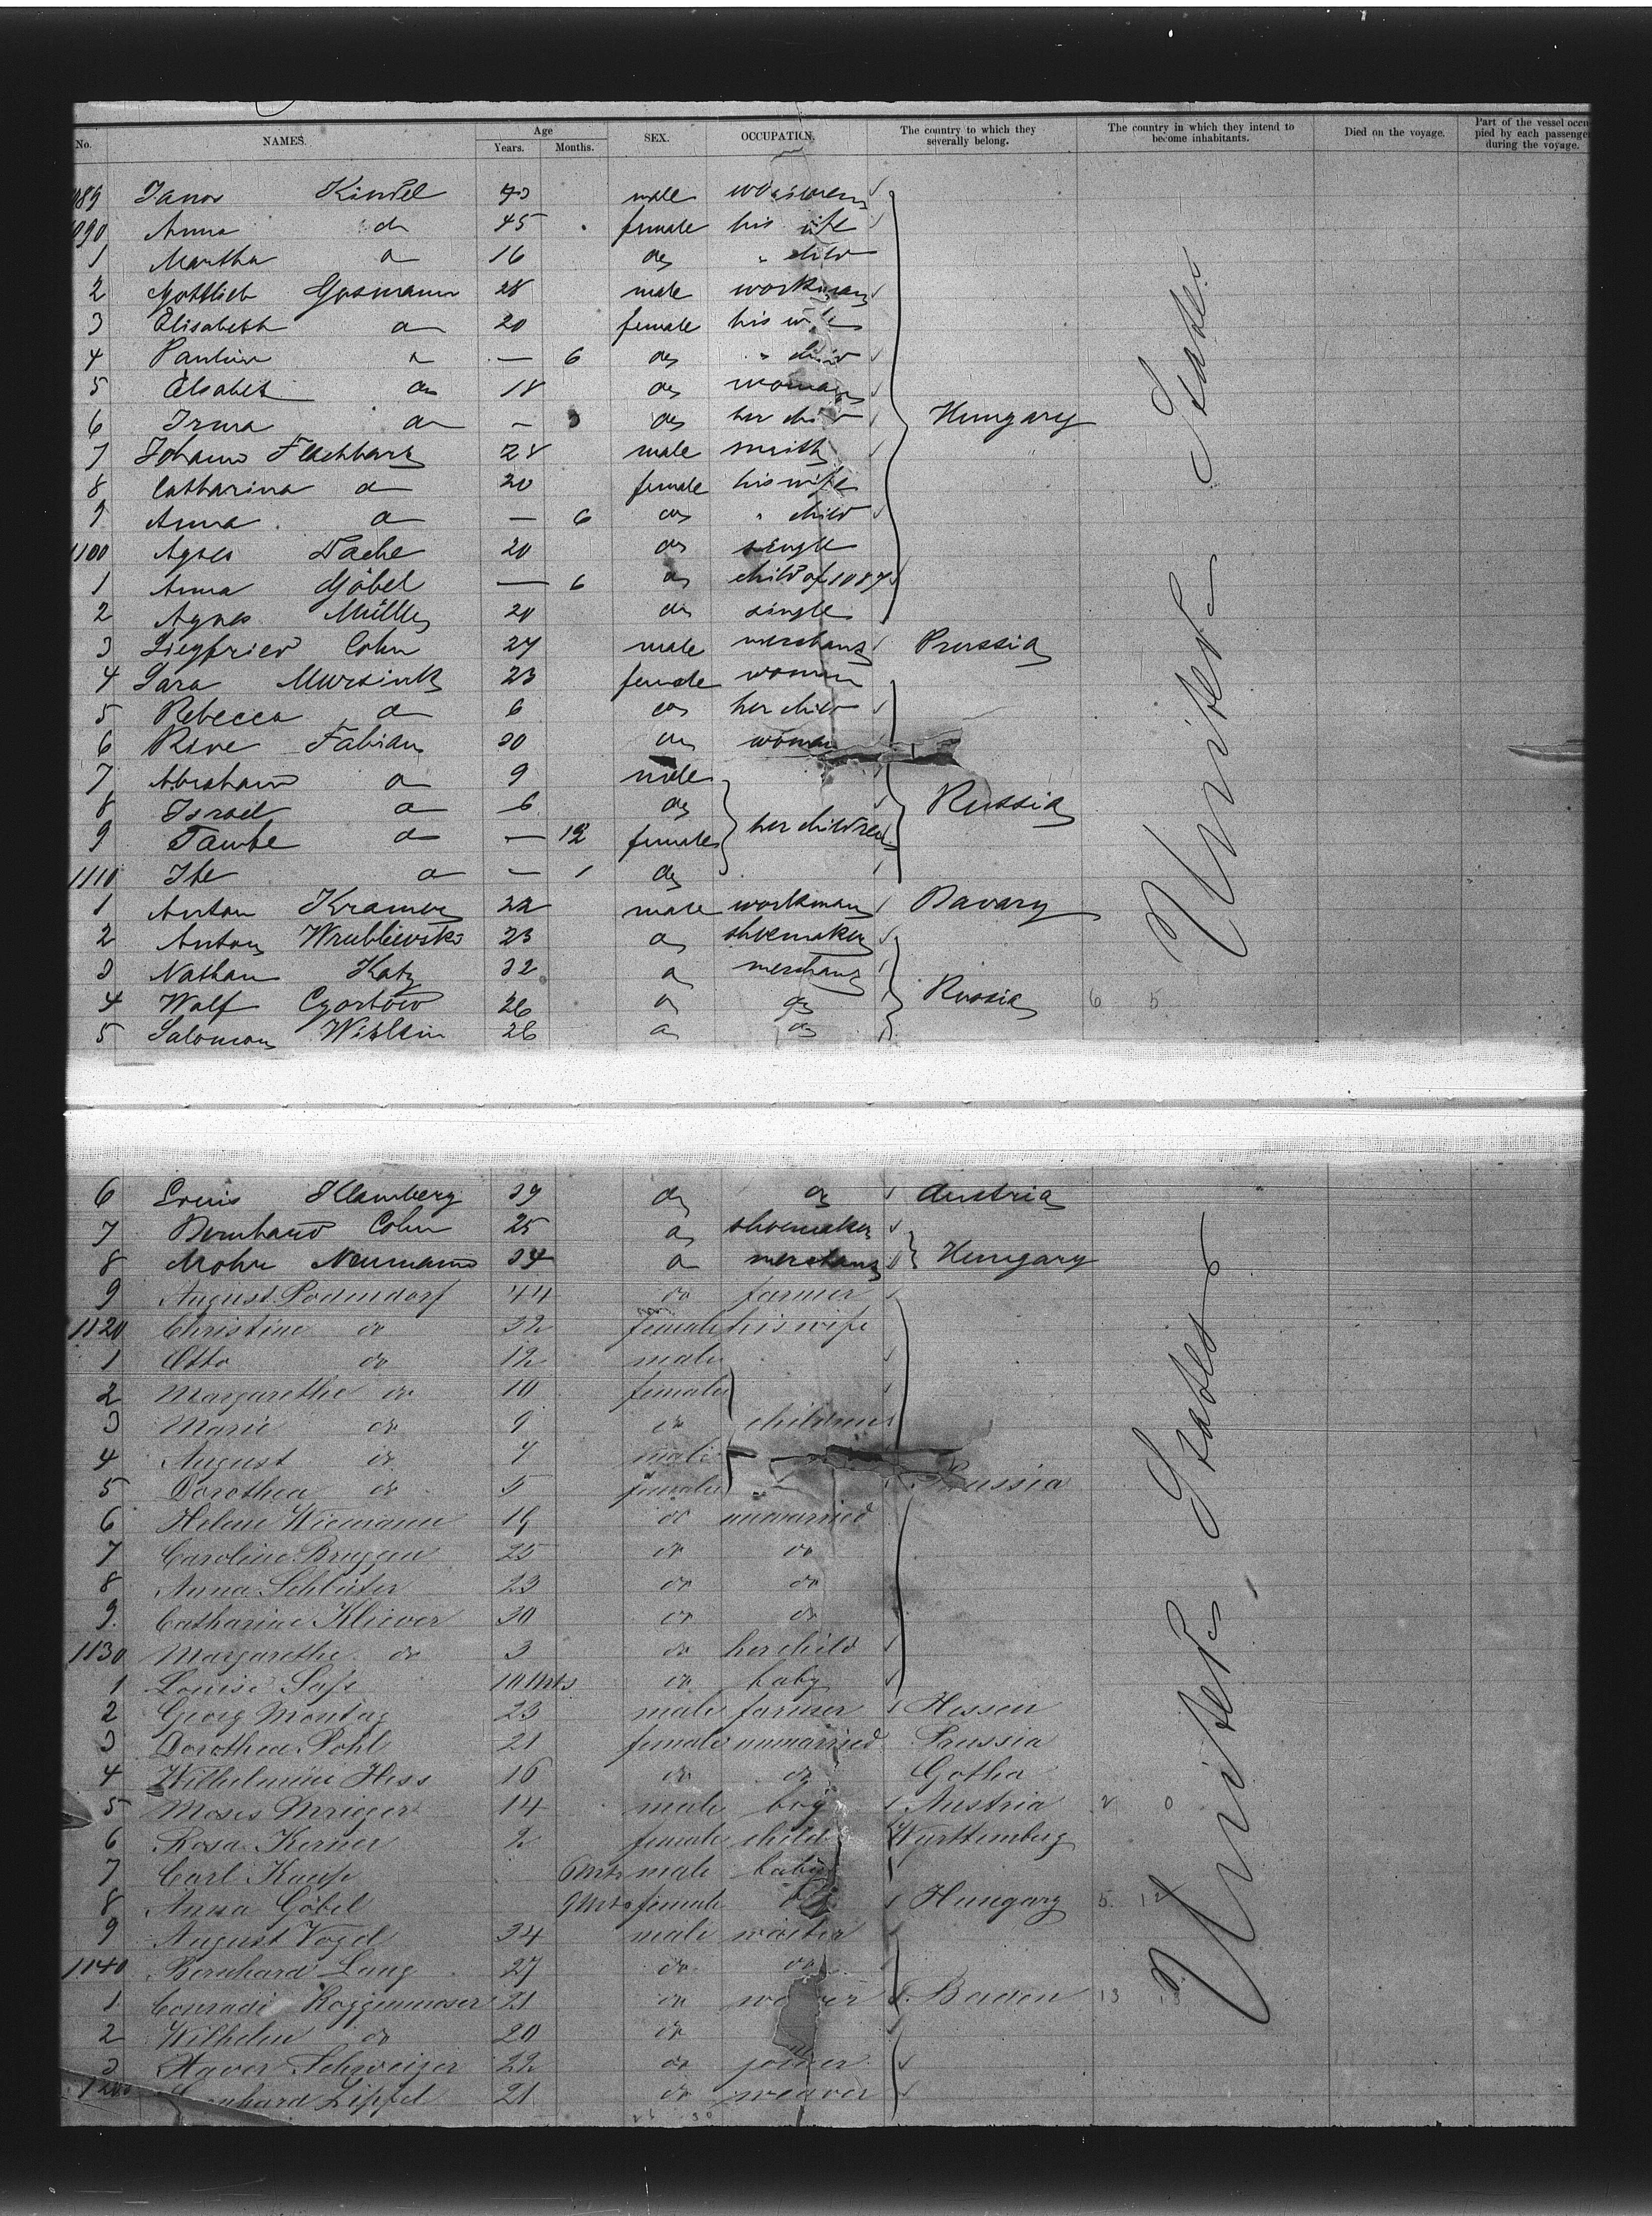 No. NAMES. Age Years. Months. SEX. OCCUPATION. The country to which they severally belong. The country in which they intend to become inhabitants. Died on the voyage. Part of the vessel occupied by each passenger during the voyage.
Janos Kindel male
1090 Anna do 45 female his wife
1 Martha do 16 do " child
2 Gottlieb 28 male workman
3 Elisabeth do 20 female his wife
4 do — 6 do " child
5 Elsabet do 18 do woman
6 Irma do — do her child Hungary
7 Johann 28 male smith
8 Catharina do 20 female his wife
9 Anna do — 6 do " child
1100 Agnes 20 do single
1 Anna Göbel — 6 do child of 1087
2 Agnes Müller 20 do single
3 Siegfried Cohn 27 male merchant Prussia
4 Sara 23 female woman
5 Rebecca do 6 do her child
6 Fabian 30 do woman
7 Abraham do 9 male
8 Israel do 6 do Russia
9 Taube do — female her children
1110 Ite do — 1 do
1 Anton Kramer 22 male workman Bavary
2 Anton Wrublewski 23 do shoemaker
3 Nathan Katz 32 do merchant
4 Wolf 26 do do Russia 6 5
5 Salomon 26 do do
United States
6 Louis 39 do do Austria
7 Bernhard Cohn 25 do shoemaker
8 Neumann 34 do merchant Hungary
9 August Podendorf 44 do farmer
1120 Christine do 32 female his wife
1 Otto do 12 male
2 Margarethe do 10 female
3 Marie do 9 do children
4 August do 7 male
5 Dorothea do 5 female Prussia
6 Helene Wiemann 19 do unmarried
7 Caroline Bruggen 25 do do
8 Anna Schlüter 23 do do
9 Catharine Kliewer 30 do do
1130 Margarethe do 3 do her child
1 Louise 10 Mts do baby
2 Georg Montag 23 male farmer Hessen
3 Dorothea Pohl 21 female unmarried Prussia
4 Wilhelmine Hess 16 do do Gotha
5 Moses 14 male boy Austria 2 0
6 Rosa Kerner 2 female child Württemberg
7 Carl 6 Mts male baby
8 Anna Göbel 9 Mts female do Hungary 5 12
9 August Vogel 34 male waiter
1140 Bernhard Lang 27 do do
1 Conradi Roggenmoser 21 do weaver Baden 13
2 Wilhelm do 20 do
3 Xaver Schweizer 22 do joiner
Zipfel 21 do weaver
United States